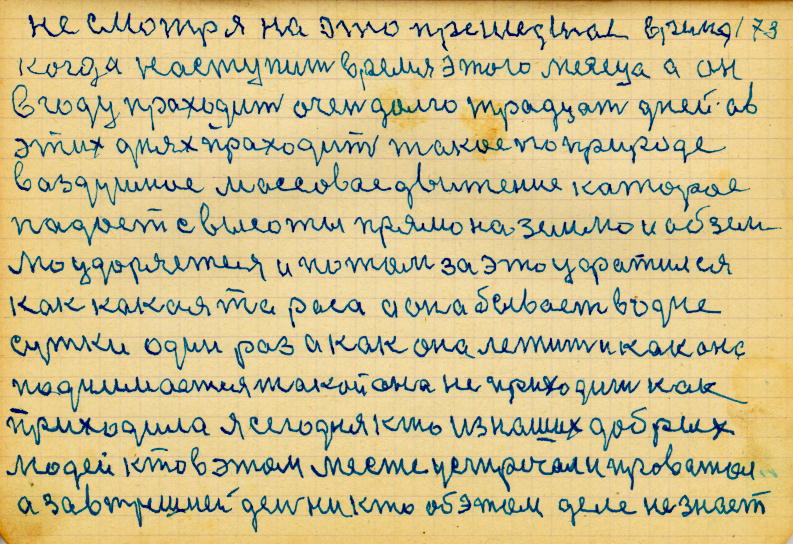 не смотря на это прешедшая время 73
когда наступит время этого месеца а он
в году праходит очен долго традцат дней. ав
этих днях праходит такое по природе
ваздушное массовае движение катораe
падает с высоты прямо на землю и об зем
лю ударяетея и потом за это
как какая та раса а она бывает в одне
сутки один раз а как она летит и как онa
поднимается такой она не приходит как
приходила я сегодня кто из наших добрых
людей кто в этом месте устричал и
а завтришней ден никто об этом деле не знает